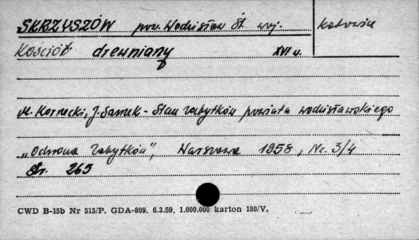 SKRZYSZÓW pow. Wodzisław Śl. woj. Katowice
Kościół drewniany XVI w.
M. Kornecki, J. Samek - Stan zabytków powiatu wodzisławskiego
„Ochrona Zabytków", Warszawa 1958, Nr. 3/4
Str. 265
CWD B-15b Nr 515/P. GDA-809. 6.3.59. 1.000.000 karton 180/V.